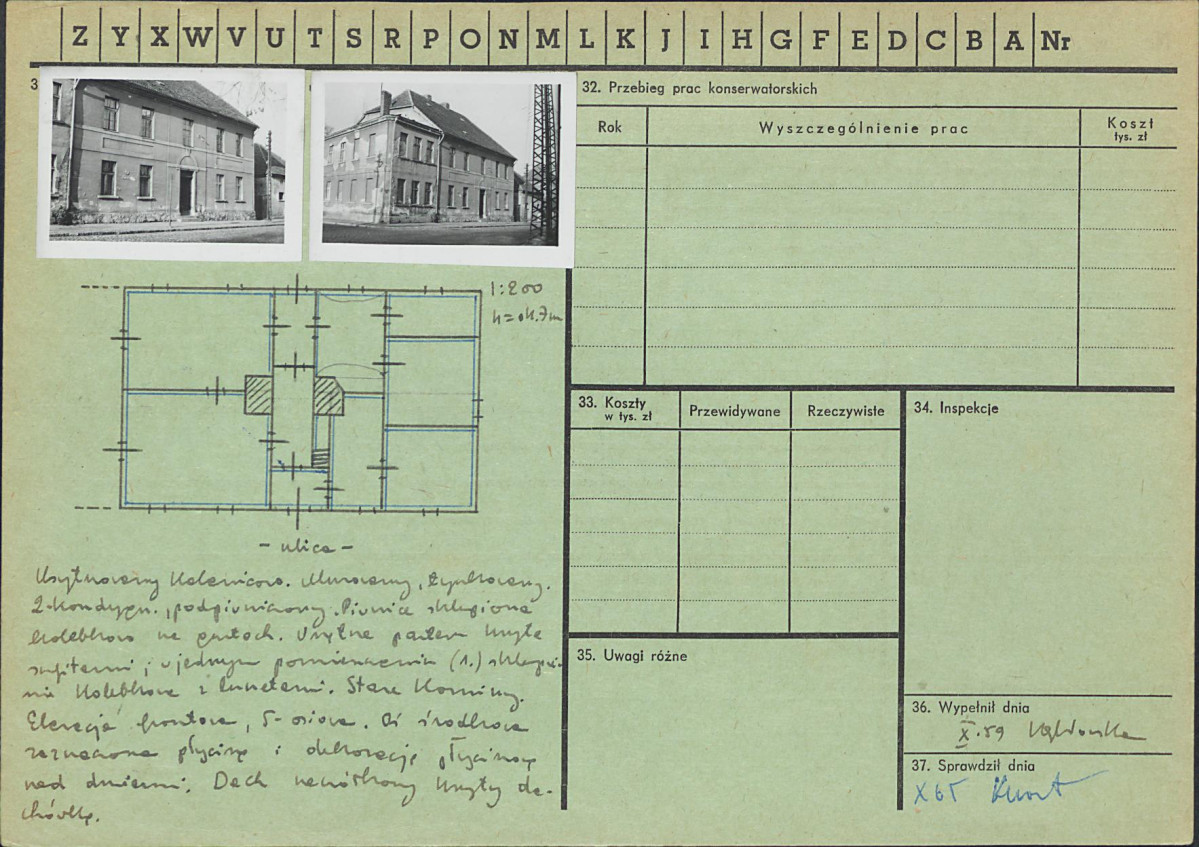 Z Y X W V U T S R P O N M L K J I H G F E D C B A Nr
3
32. Przebieg prac konserwatorskich
Rok
Wyszczególnienie prac
Koszt
tys. zł
1:200
- ulica -
Usytuowany kalenicowo. Murowany, tynkowany.
2-kondygn., podpiwniczony. Piwnica sklepiona
kolebkowo na gurtach. Wnętrza parteru kryte
sufitami; w jednym pomieszczeniu (1.) sklepie-
nie kolebkowe z lunetami. Stare kominy.
Elewacja frontowa, 5-osiowa. Oś środkowa
zaznaczona płyciną i dekoracją płycinową
nad drzwiami. Dach naczółkowy kryty da-
chówką.
33. Koszty
w tys. zł
Przewidywane
Rzeczywiste
34. Inspekcje
35. Uwagi różne
36. Wypełnił dnia
X.59
37. Sprawdził dnia
X 65